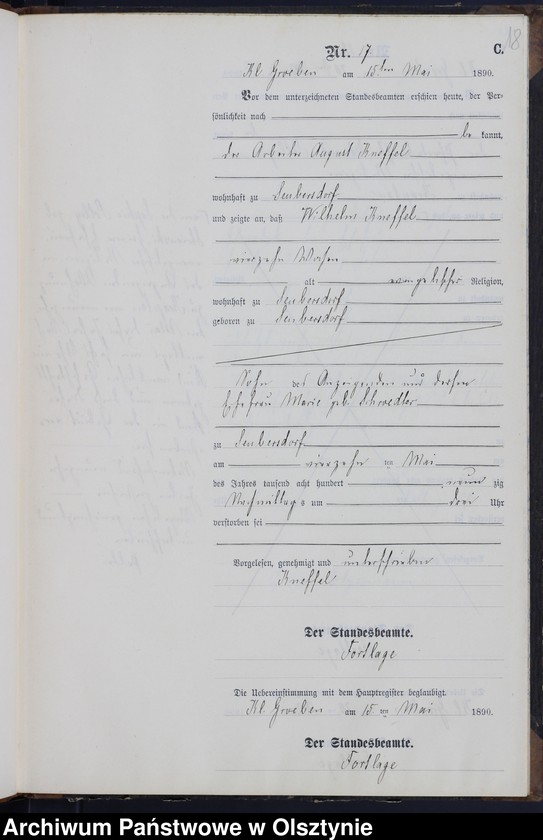 18
Nr. 17 C.
Kl. Groeben am 15ten Mai 1890.
Vor dem unterzeichneten Standesbeamten erschien heute, der Per-
sönlichkeit nach
be kannt,
der Arbeiter August Kneffel
wohnhaft zu Seubersdorf
und zeigte an, daß Wilhelm Kneffel
vierzehn Wochen
alt evangelischer Religion,
wohnhaft zu Seubersdorf
geboren zu Seubersdorf
Sohn des Anzeigenden und dessen
Ehefrau Marie geb. Schroedter
zu Seubersdorf
am vierzehn ten Mai
des Jahres tausend acht hundert neun zig
Nachmittags um drei Uhr
verstorben sei
Vorgelesen, genehmigt und unterschrieben
Kneffel
Der Standesbeamte.
Fortlage
Die Uebereinstimmung mit dem Hauptregister beglaubigt.
Kl. Groeben am 15. ten Mai 1890.
Der Standesbeamte.
Fortlage
Archiwum Państwowe w Olsztynie